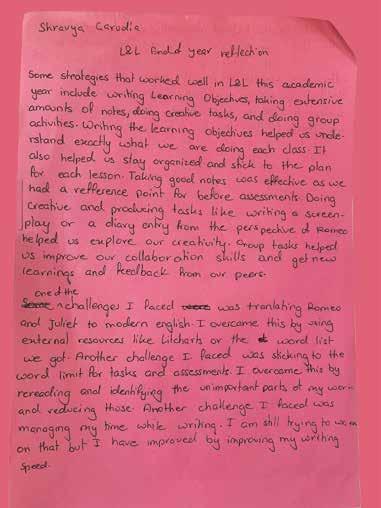 Shravya Garudia
L&L End of year reflection
Some strategies that worked well in L&L this academic
year include writing Learning Objectives, taking extensive
amounts of notes, doing creative tasks, and doing group
activities. Writing the learning objectives helped us unde-
rstand exactly what we are doing each class. It
also helped us stay organized and stick to the plan
for each lesson. Taking good notes was effective as we
had a refference point for before assessments. Doing
creative and producing tasks like writing a screen-
play or a diary entry from the perspective of Romeo
helped us explore our creativity. Group tasks helped
us improve our collaboration skills and get new
learnings and feedback from our peers.
one of the
challenges I faced was translating Romeo
and Juliet to modern english. I overcame this by using
external resources like Litcharts or the word list
we got. Another challenge I faced was sticking to the
word limit for tasks and assessments. I overcame this by
rereading and identifying the unimportant parts of my work
and reducing those. Another challenge I faced was
managing my time while writing. I am still trying to work
on that but I have improved by improving my writing
speed.